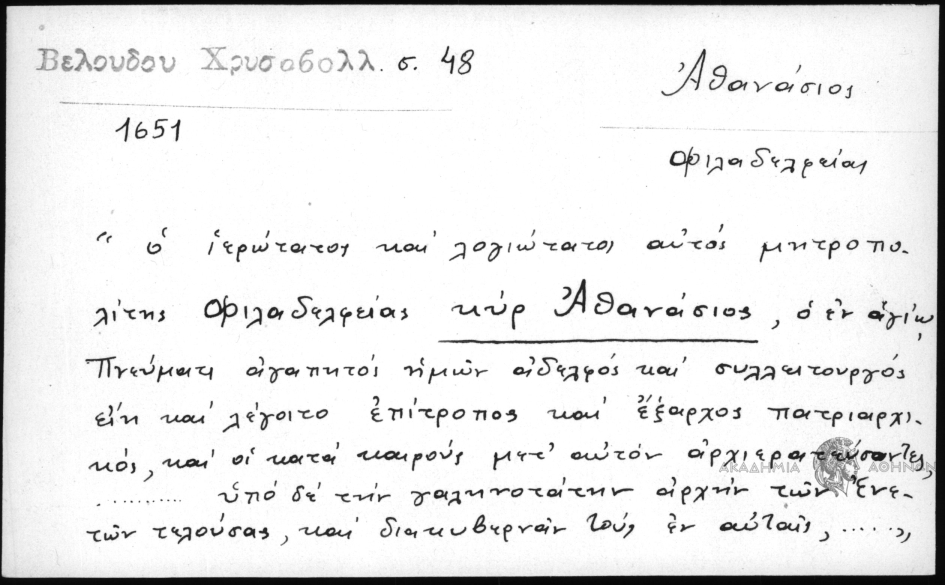 Βελουδου Χρυσοβολλ. σ. 48
Ἀθανάσιος
1651
Φιλαδελφείας
“ ὁ ἱερώτατος καὶ λογιώτατος αὐτός μητροπο-
λίτης Φιλαδελφείας κύρ Ἀθανάσιος, ὁ ἐν ἁγίῳ
Πνεύματι ἀγαπητός ἡμῶν ἀδελφός καὶ συλλειτουργός
εἴη καὶ λέγοιτο ἐπίτροπος καὶ ἔξαρχος πατριαρχι-
κός, καὶ οἱ κατά καιρούς μετ' αὐτόν ἀρχιερατεύσαντες,
ΑΚΑΔΗΜΙΑ ΑΘΗΝΩΝ
.......... ὑπό δέ τήν γαληνοτάτην ἀρχήν τῶν Ἐνε-
τῶν τελούσας, καὶ διακυβερνᾶν τούς ἐν αὐταῖς, .....,,